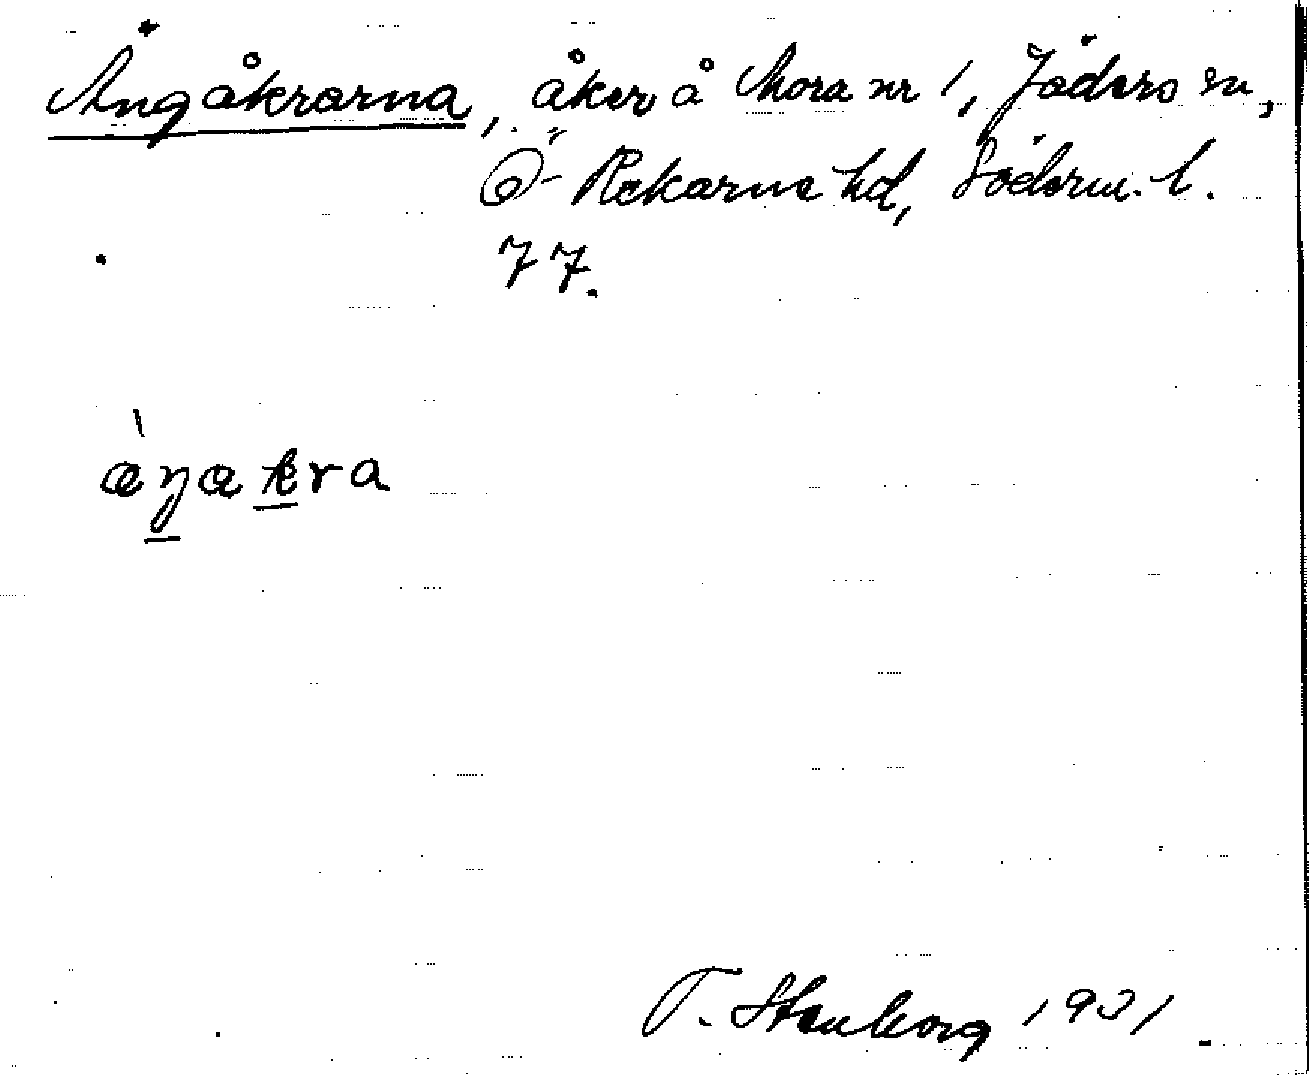 Ängåkrarna, åker å Mora nr 1, Jäders sn,
Ö-Rekarne hd, Söderm. l.
77.
T. Stenborg 1931